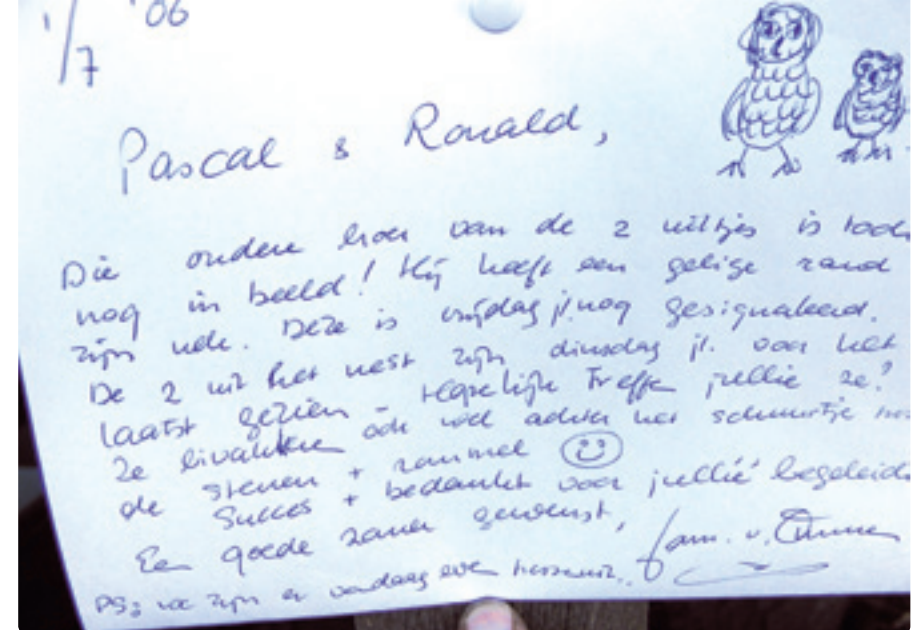 1/7 '06
Pascal & Ronald,
Die oudere broer van de 2 uiltjes is toch
nog in beeld! Hij heeft een gelige rand
zijn nek. Deze is vrijdag jl. nog gesignaleerd.
De 2 uit het nest zijn dinsdag jl. voor het
laatst gezien - Hopelijk treffen jullie ze?
Ze bivakkeren ook wel achter het schuurtje
de stenen + rommel
Succes + bedankt voor jullie begeleid
Een goede zomer gewenst,
fam. v.
PS: we zijn er vandaag even